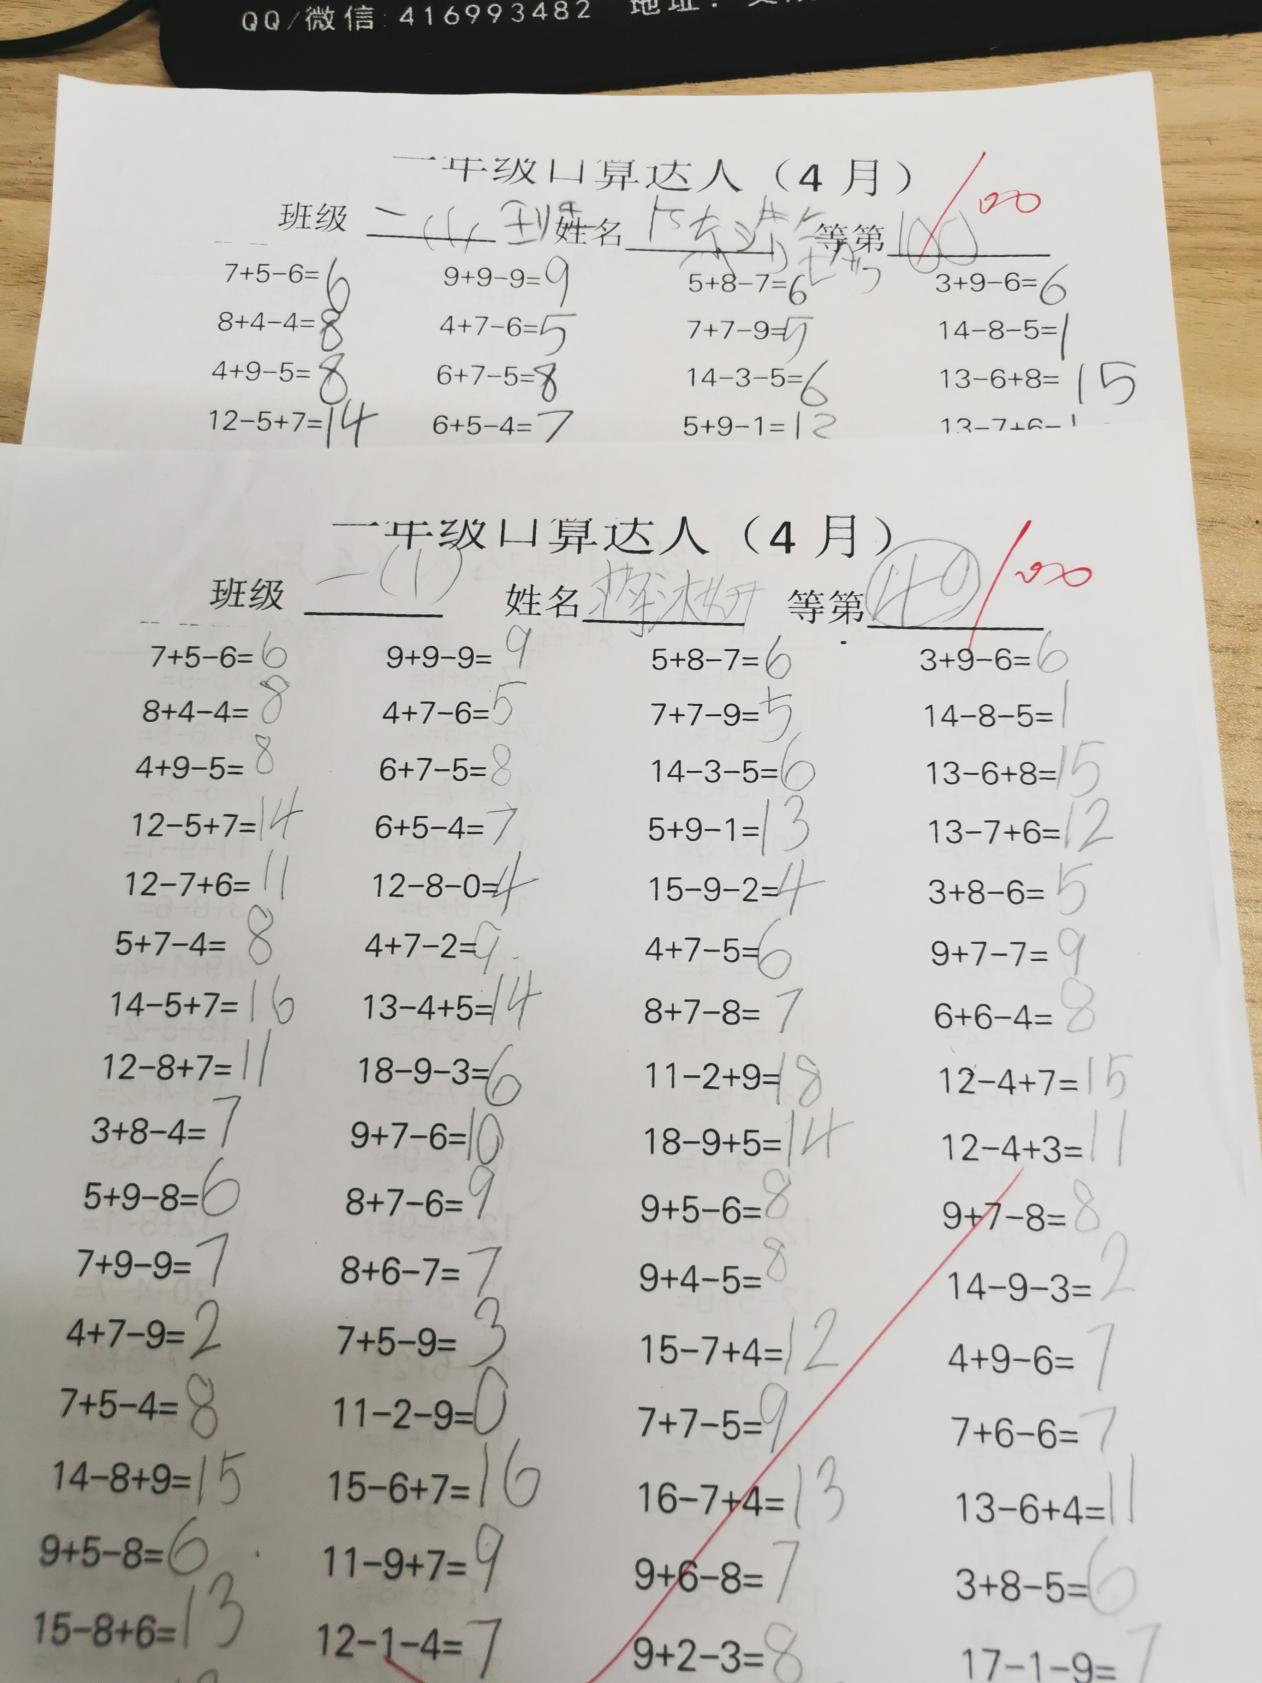 QQ/微信:416993482 地址:
一年级口算达人（4月）
班级 姓名 等第 100 100
7+5-6=6 9+9-9=9 5+8-7=6 3+9-6=6
8+4-4=8 4+7-6=5 7+7-9=5 14-8-5=1
4+9-5=8 6+7-5=8 14-3-5=6 13-6+8=15
12-5+7=14 6+5-4=7 5+9-1=12 13-7+6=1
一年级口算达人（4月）
班级 一(1) 姓名 等第 40 100
7+5-6=6 9+9-9=9 5+8-7=6 3+9-6=6
8+4-4=8 4+7-6=5 7+7-9=5 14-8-5=1
4+9-5=8 6+7-5=8 14-3-5=6 13-6+8=15
12-5+7=14 6+5-4=7 5+9-1=13 13-7+6=12
12-7+6=11 12-8-0=4 15-9-2=4 3+8-6=5
5+7-4=8 4+7-2=9 4+7-5=6 9+7-7=9
14-5+7=16 13-4+5=14 8+7-8=7 6+6-4=8
12-8+7=11 18-9-3=6 11-2+9=18 12-4+7=15
3+8-4=7 9+7-6=10 18-9+5=14 12-4+3=11
5+9-8=6 8+7-6=9 9+5-6=8 9+7-8=8
7+9-9=7 8+6-7=7 9+4-5=8 14-9-3=2
4+7-9=2 7+5-9=3 15-7+4=12 4+9-6=7
7+5-4=8 11-2-9=0 7+7-5=9 7+6-6=7
14-8+9=15 15-6+7=16 16-7+4=13 13-6+4=11
9+5-8=6 11-9+7=9 9+6-8=7 3+8-5=6
15-8+6=13 12-1-4=7 9+2-3=8 17-1-9=7